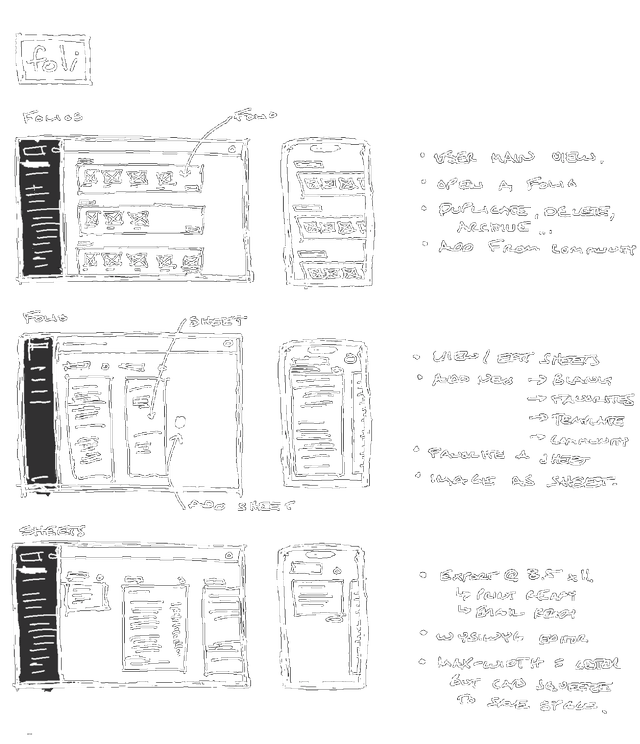 foli
FOLIOS
FOLIO
• USER MAIN VIEW.
• OPEN A FOLIO
• DUPLICATE, DELETE,
ARCHIVE ...
• ADD FROM COMMUNITY
FOLIO
SHEET
• VIEW / EDIT SHEETS
• ADD NEW → BLANK
→ FAVOURITES
→ TEMPLATE
→ COMMUNITY
• FAVOURITE A SHEET
• IMAGE AS SHEET.
ADD SHEET
SHEETS
• EXPORT @ 8.5" x 11
↳ PRINT READY
↳ EMAIL READY
• WYSIWYG EDITOR
• MAX-WIDTH 8 LETTER
BUT CAN SQUEEZE
TO SAVE SPACE.